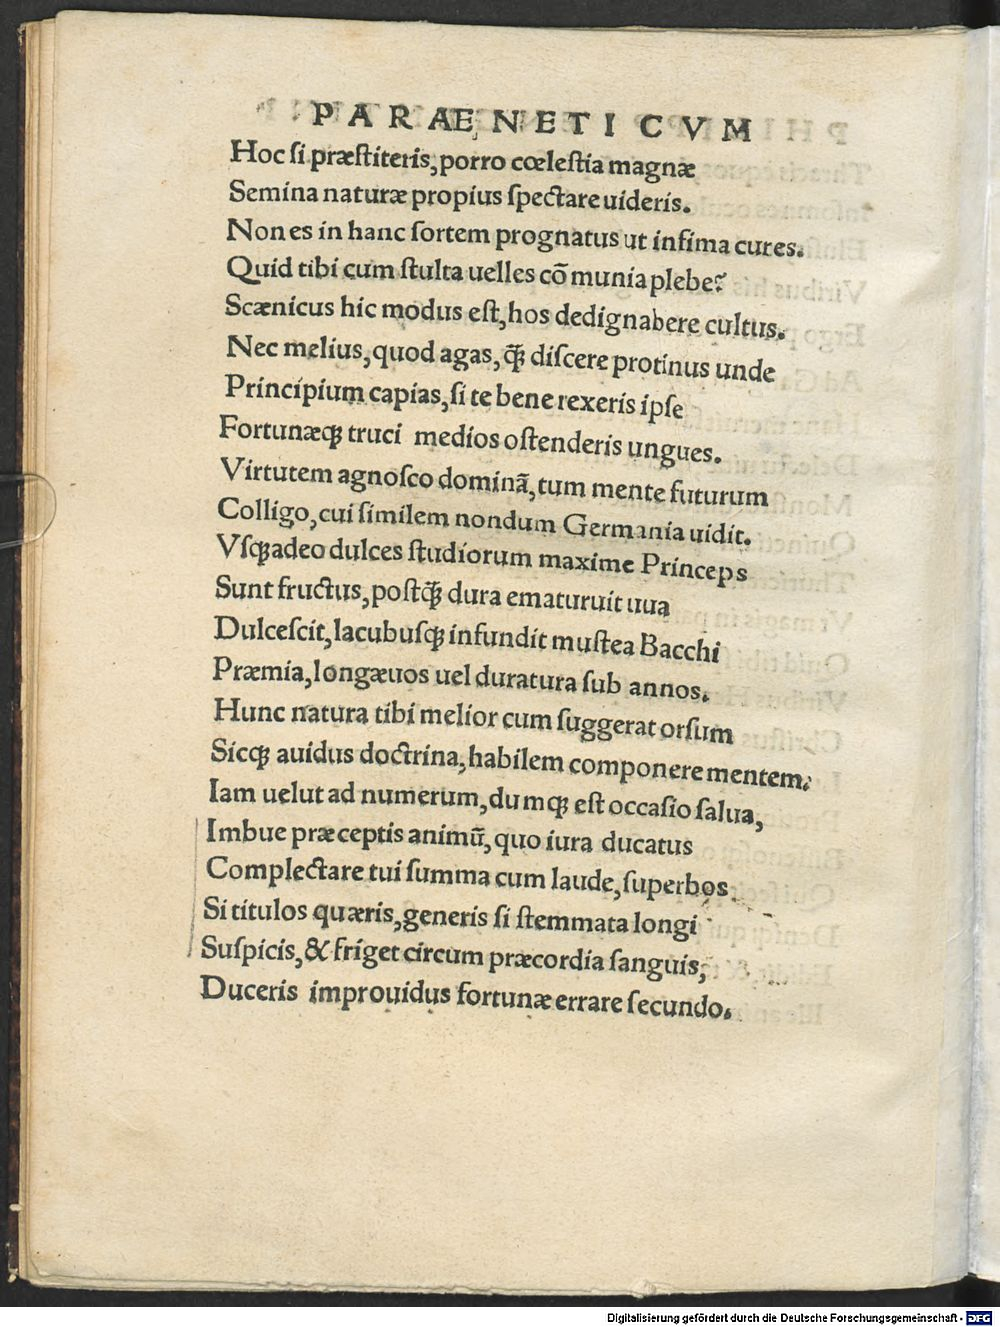 PARAENETICVM
Hoc ſi præſtiteris, porro cœleſtia magnæ
Semina naturæ propius ſpectare uideris.
Non es in hanc ſortem prognatus ut infima cures.
Quid tibi cum ſtulta uelles cōmunia plebe?
Scænicus hic modus eſt, hos dedignabere cultus.
Nec melius, quod agas, ꝙ̃ diſcere protinus unde
Principium capias, ſi te bene rexeris ipſe
Fortunæqꝫ truci medios oſtenderis ungues.
Virtutem agnoſco dominā, tum mente futurum
Colligo, cui ſimilem nondum Germania uidit.
Vſqꝫadeo dulces ſtudiorum maxime Princeps
Sunt fructus, poſtꝙ̃ dura ematuruit uua
Dulceſcit, lacubuſqꝫ infundit muſtea Bacchi
Præmia, longæuos uel duratura ſub annos.
Hunc natura tibi melior cum ſuggerat orſum
Sicqꝫ auidus doctrina, habilem componere mentem.
Iam uelut ad numerum, dumqꝫ eſt occaſio ſalua,
Imbue præceptis animū, quo iura ducatus
Complectare tui ſumma cum laude, ſuperbos
Si titulos quæris, generis ſi ſtemmata longi
Suſpicis, & friget circum præcordia ſanguis,
Duceris improuidus fortunæ errare ſecundo.
Digitalisierung gefördert durch die Deutsche Forschungsgemeinschaft - DFG